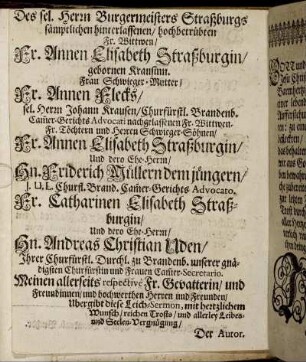 Des sel. Herrn Burgermeisters Straßburgs
sämptlichen hinterlassenen / hochbetrübten
Fr. Wittwen /
Fr. Annen Elisabeth Straßburgin /
gebornen Krausinn.
Frau Schwieger-Mutter /
Fr. Annen Flecks /
sel. Herrn Johann Krausen / Churfürstl. Brandenb.
Cam̃er-Gerichts Advocati nachgelassenen Fr. Wittwen.
Fr. Töchtern und Herren Schwieger-Söhnen /
Fr. Annen Elisabeth Straßburgin /
Und dero Ehe-Herrn /
Hn. Friderich Müllern dem jüngern /
J. U. L. Churfl. Brand. Cam̃er-Gerichts Advocato,
Fr. Catharinen Elisabeth Straß-
burgin /
Und dero Ehe-Herrn /
Hn. Andreas Christian Uden /
Ihrer Churfürstl. Durchl. zu Brandenb. unserer gnä-
digsten Churfürstin und Frauen Cam̃er-Secretario.
Meinen allerseits respectivè Fr. Gevatterin / und
Freundinnen / und hochwerthen Herren und Freunden /
Ubergibt diese Leich-Sermon, mit hertzlichem
Wunsch / reichen Trosts / und allerley Leibes-
und Seelen-Vergnügung /
Der Autor.